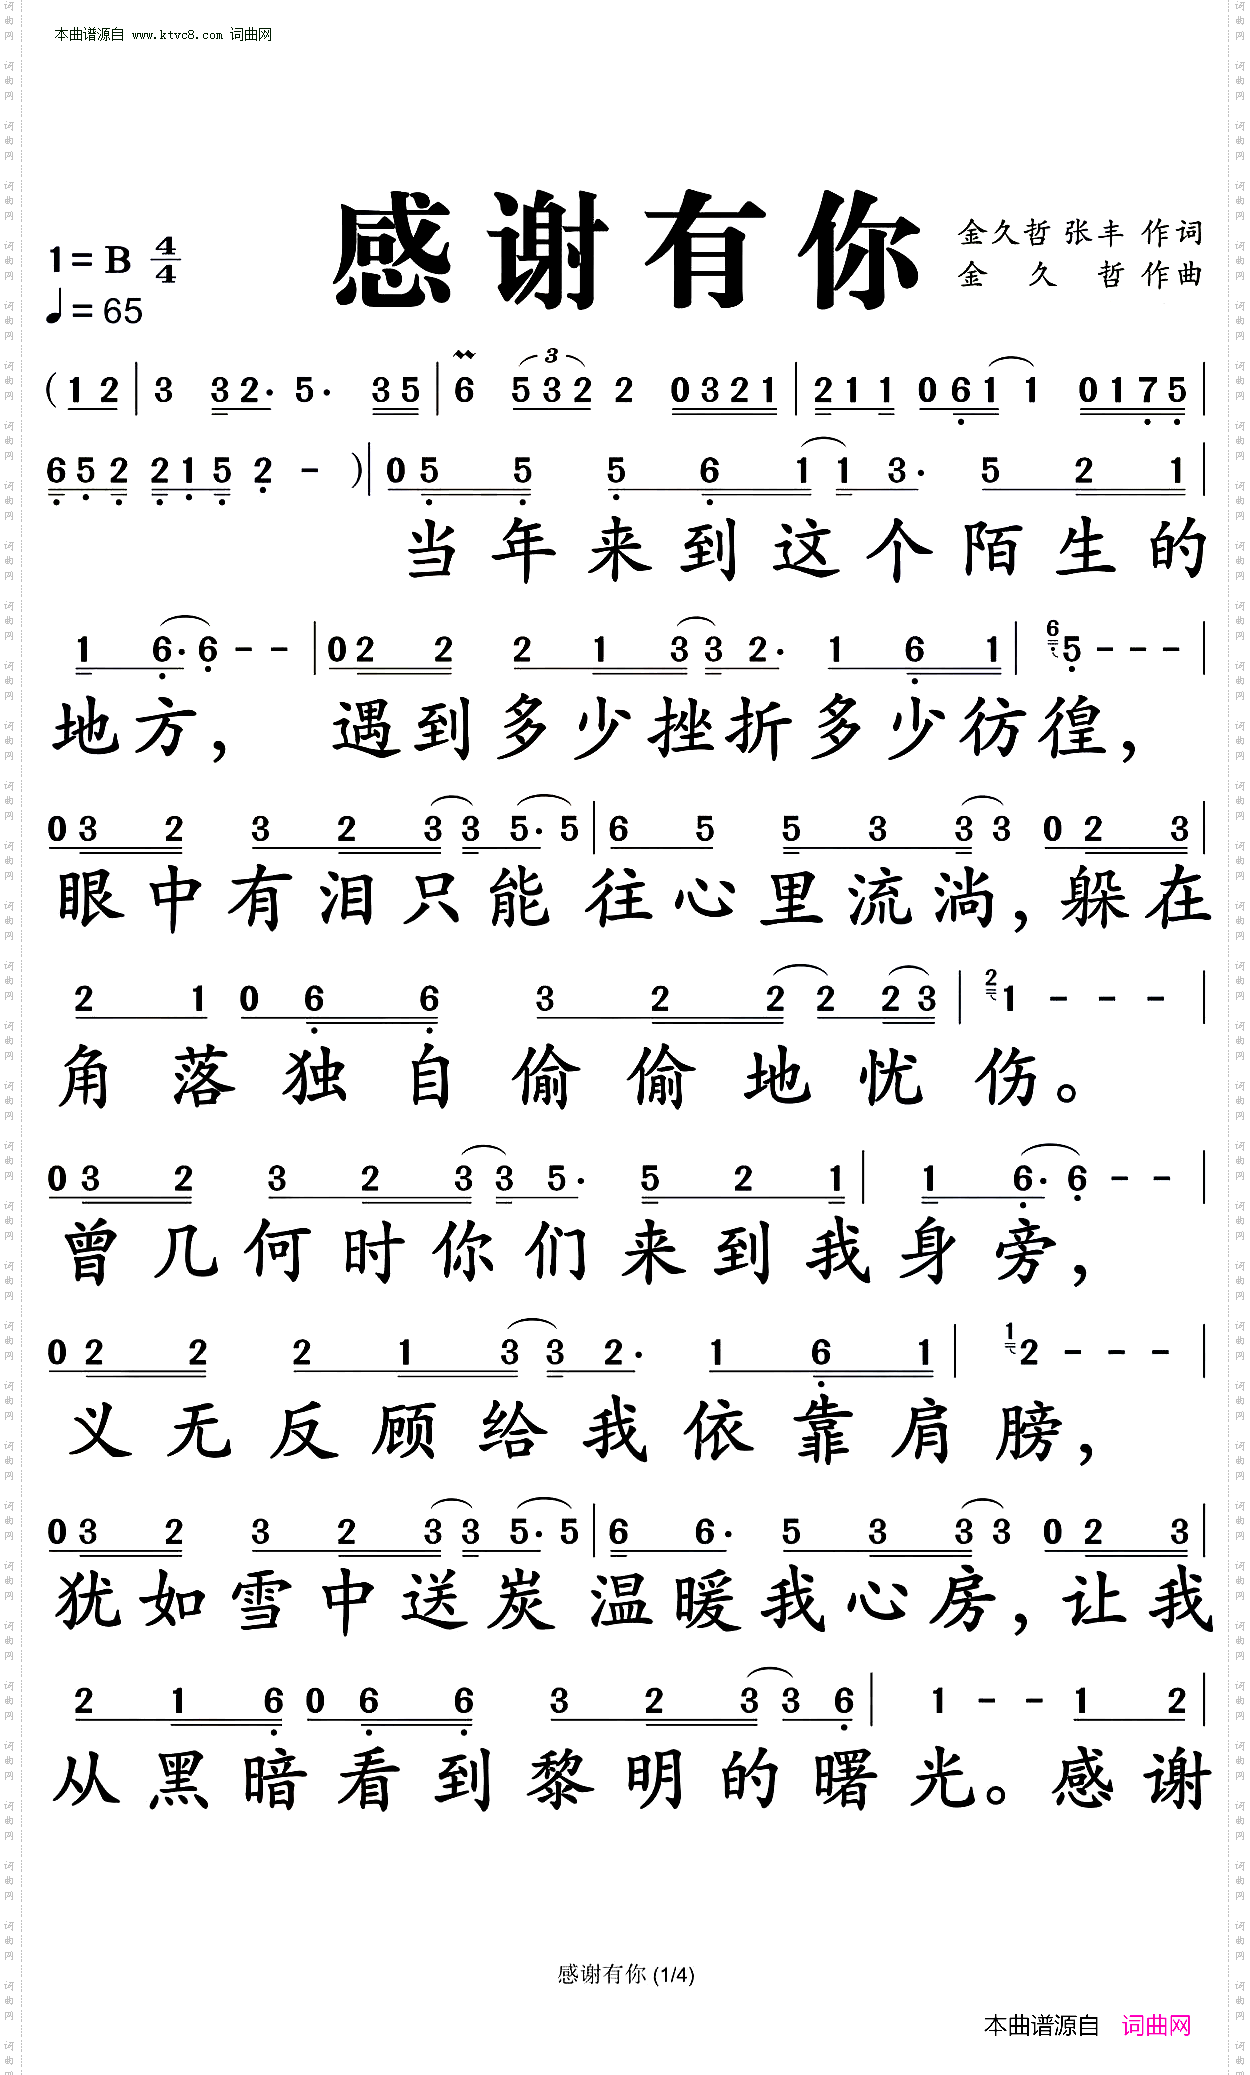 本曲谱源自 www.ktvc8.com 词曲网
感谢有你
金久哲 张丰 作词
金 久 哲 作曲
1= B 4/4
♩= 65
( 1 2 | 3 3 2· 5· 3 5 | 6 5 3 2 2 0 3 2 1 | 2 1 1 0 6 1 1 0 1 7 5 |
6 5 2 2 1 5 2 - ) | 0 5 5 5 6 1 1 3· 5 2 1 |
当年来到这个陌生的
1 6· 6 - - | 0 2 2 2 1 3 3 2· 1 6 1 | 6 5 - - - |
地方， 遇到多少挫折多少彷徨，
0 3 2 3 2 3 3 5· 5 | 6 5 5 3 3 3 0 2 3 |
眼中有泪只能往心里流淌，躲在
2 1 0 6 6 3 2 2 2 2 3 | 2 1 - - - |
角落独自偷偷地忧伤。
0 3 2 3 2 3 3 5· 5 2 1 | 1 6· 6 - - |
曾几何时你们来到我身旁，
0 2 2 2 1 3 3 2· 1 6 1 | 1 2 - - - |
义无反顾给我依靠肩膀，
0 3 2 3 2 3 3 5· 5 | 6 6· 5 3 3 3 0 2 3 |
犹如雪中送炭温暖我心房，让我
2 1 6 0 6 6 3 2 3 3 6 | 1 - - 1 2 |
从黑暗看到黎明的曙光。感谢
感谢有你 (1/4)
本曲谱源自 词曲网